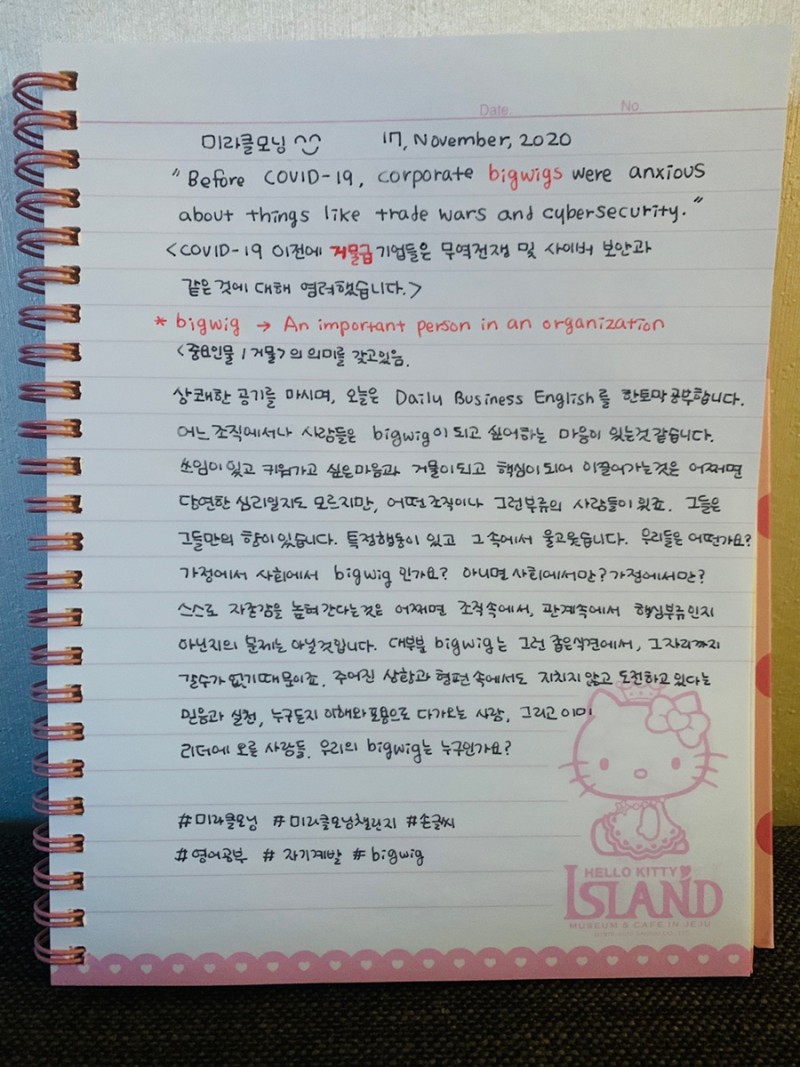 Date. No.
미라클모닝 ^^ 17, November, 2020
"Before COVID-19, corporate bigwigs were anxious
about things like trade wars and cybersecurity."
<COVID-19 이전에 거물급 기업들은 무역전쟁 및 사이버 보안과
같은 것에 대해 염려했습니다.>
* bigwig → An important person in an organization
<중요인물 / 거물>의 의미를 갖고있음.
상쾌한 공기를 마시며, 오늘은 Daily Business English를 한토막 공부합니다.
어느 조직에서나 사람들은 bigwig이 되고 싶어하는 마음이 있는것 같습니다.
쓰임이 있고 키워가고 싶은마음과 거물이되고 핵심이 되어 이끌어가는것은 어쩌면
당연한 심리일지도 모르지만, 어떤조직이나 그런부류의 사람들이 있죠. 그들은
그들만의 향이 있습니다. 특정행동이 있고 그 속에서 울고웃습니다. 우리들은 어떤가요?
가정에서 사회에서 bigwig 인가요? 아니면 사회에서만? 가정에서만?
스스로 자존감을 높혀 간다는것은 어쩌면 조직속에서, 관계속에서 핵심부류인지
아닌지의 문제는 아닐것입니다. 대부분 bigwig는 그런 좁은식견에서, 그자리까지
갈수가 없기때문이죠. 주어진 상황과 형편속에서도 지치지 않고 도전하고 있다는
믿음과 실천, 누구든지 이해와포용으로 다가오는 사람, 그리고 이미
리더에 오른 사람들. 우리의 bigwig는 누구인가요?
#미라클모닝 #미라클모닝챌린지 #손글씨
#영어공부 # 자기계발 # bigwig
HELLO KITTY
ISLAND
MUSEUM & CAFE IN JEJU